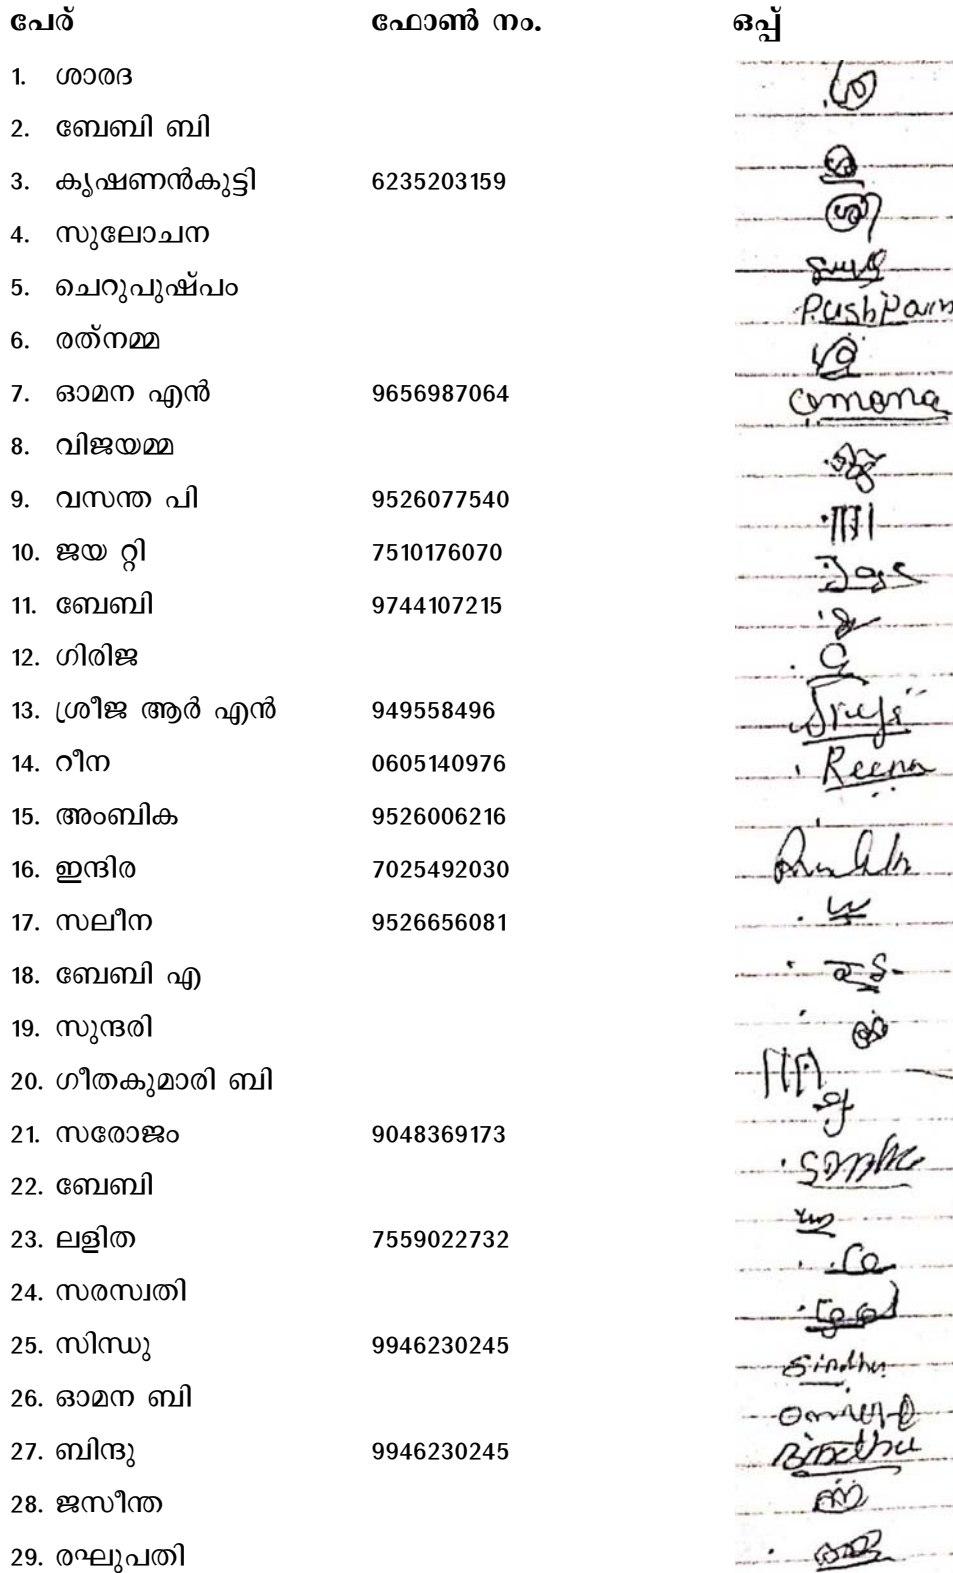 പേര് ഫോൺ നം. ഒപ്പ്
1. ശാരദ
2. ബേബി ബി
3. കൃഷണൻകുട്ടി 6235203159
4. സുലോചന
5. ചെറുപുഷ്പം PushPam
6. രത്നമ്മ
7. ഓമന എൻ 9656987064 omana
8. വിജയമ്മ
9. വസന്ത പി 9526077540
10. ജയ റ്റി 7510176070
11. ബേബി 9744107215
12. ഗിരിജ
13. ശ്രീജ ആർ എൻ 949558496
14. റീന 0605140976 Reena
15. അംബിക 9526006216
16. ഇന്ദിര 7025492030
17. സലീന 9526656081
18. ബേബി എ
19. സുന്ദരി
20. ഗീതകുമാരി ബി
21. സരോജം 9048369173
22. ബേബി
23. ലളിത 7559022732
24. സരസ്വതി
25. സിന്ധു 9946230245 Sindhu
26. ഓമന ബി
27. ബിന്ദു 9946230245 Bindhu
28. ജസീന്ത
29. രഘുപതി